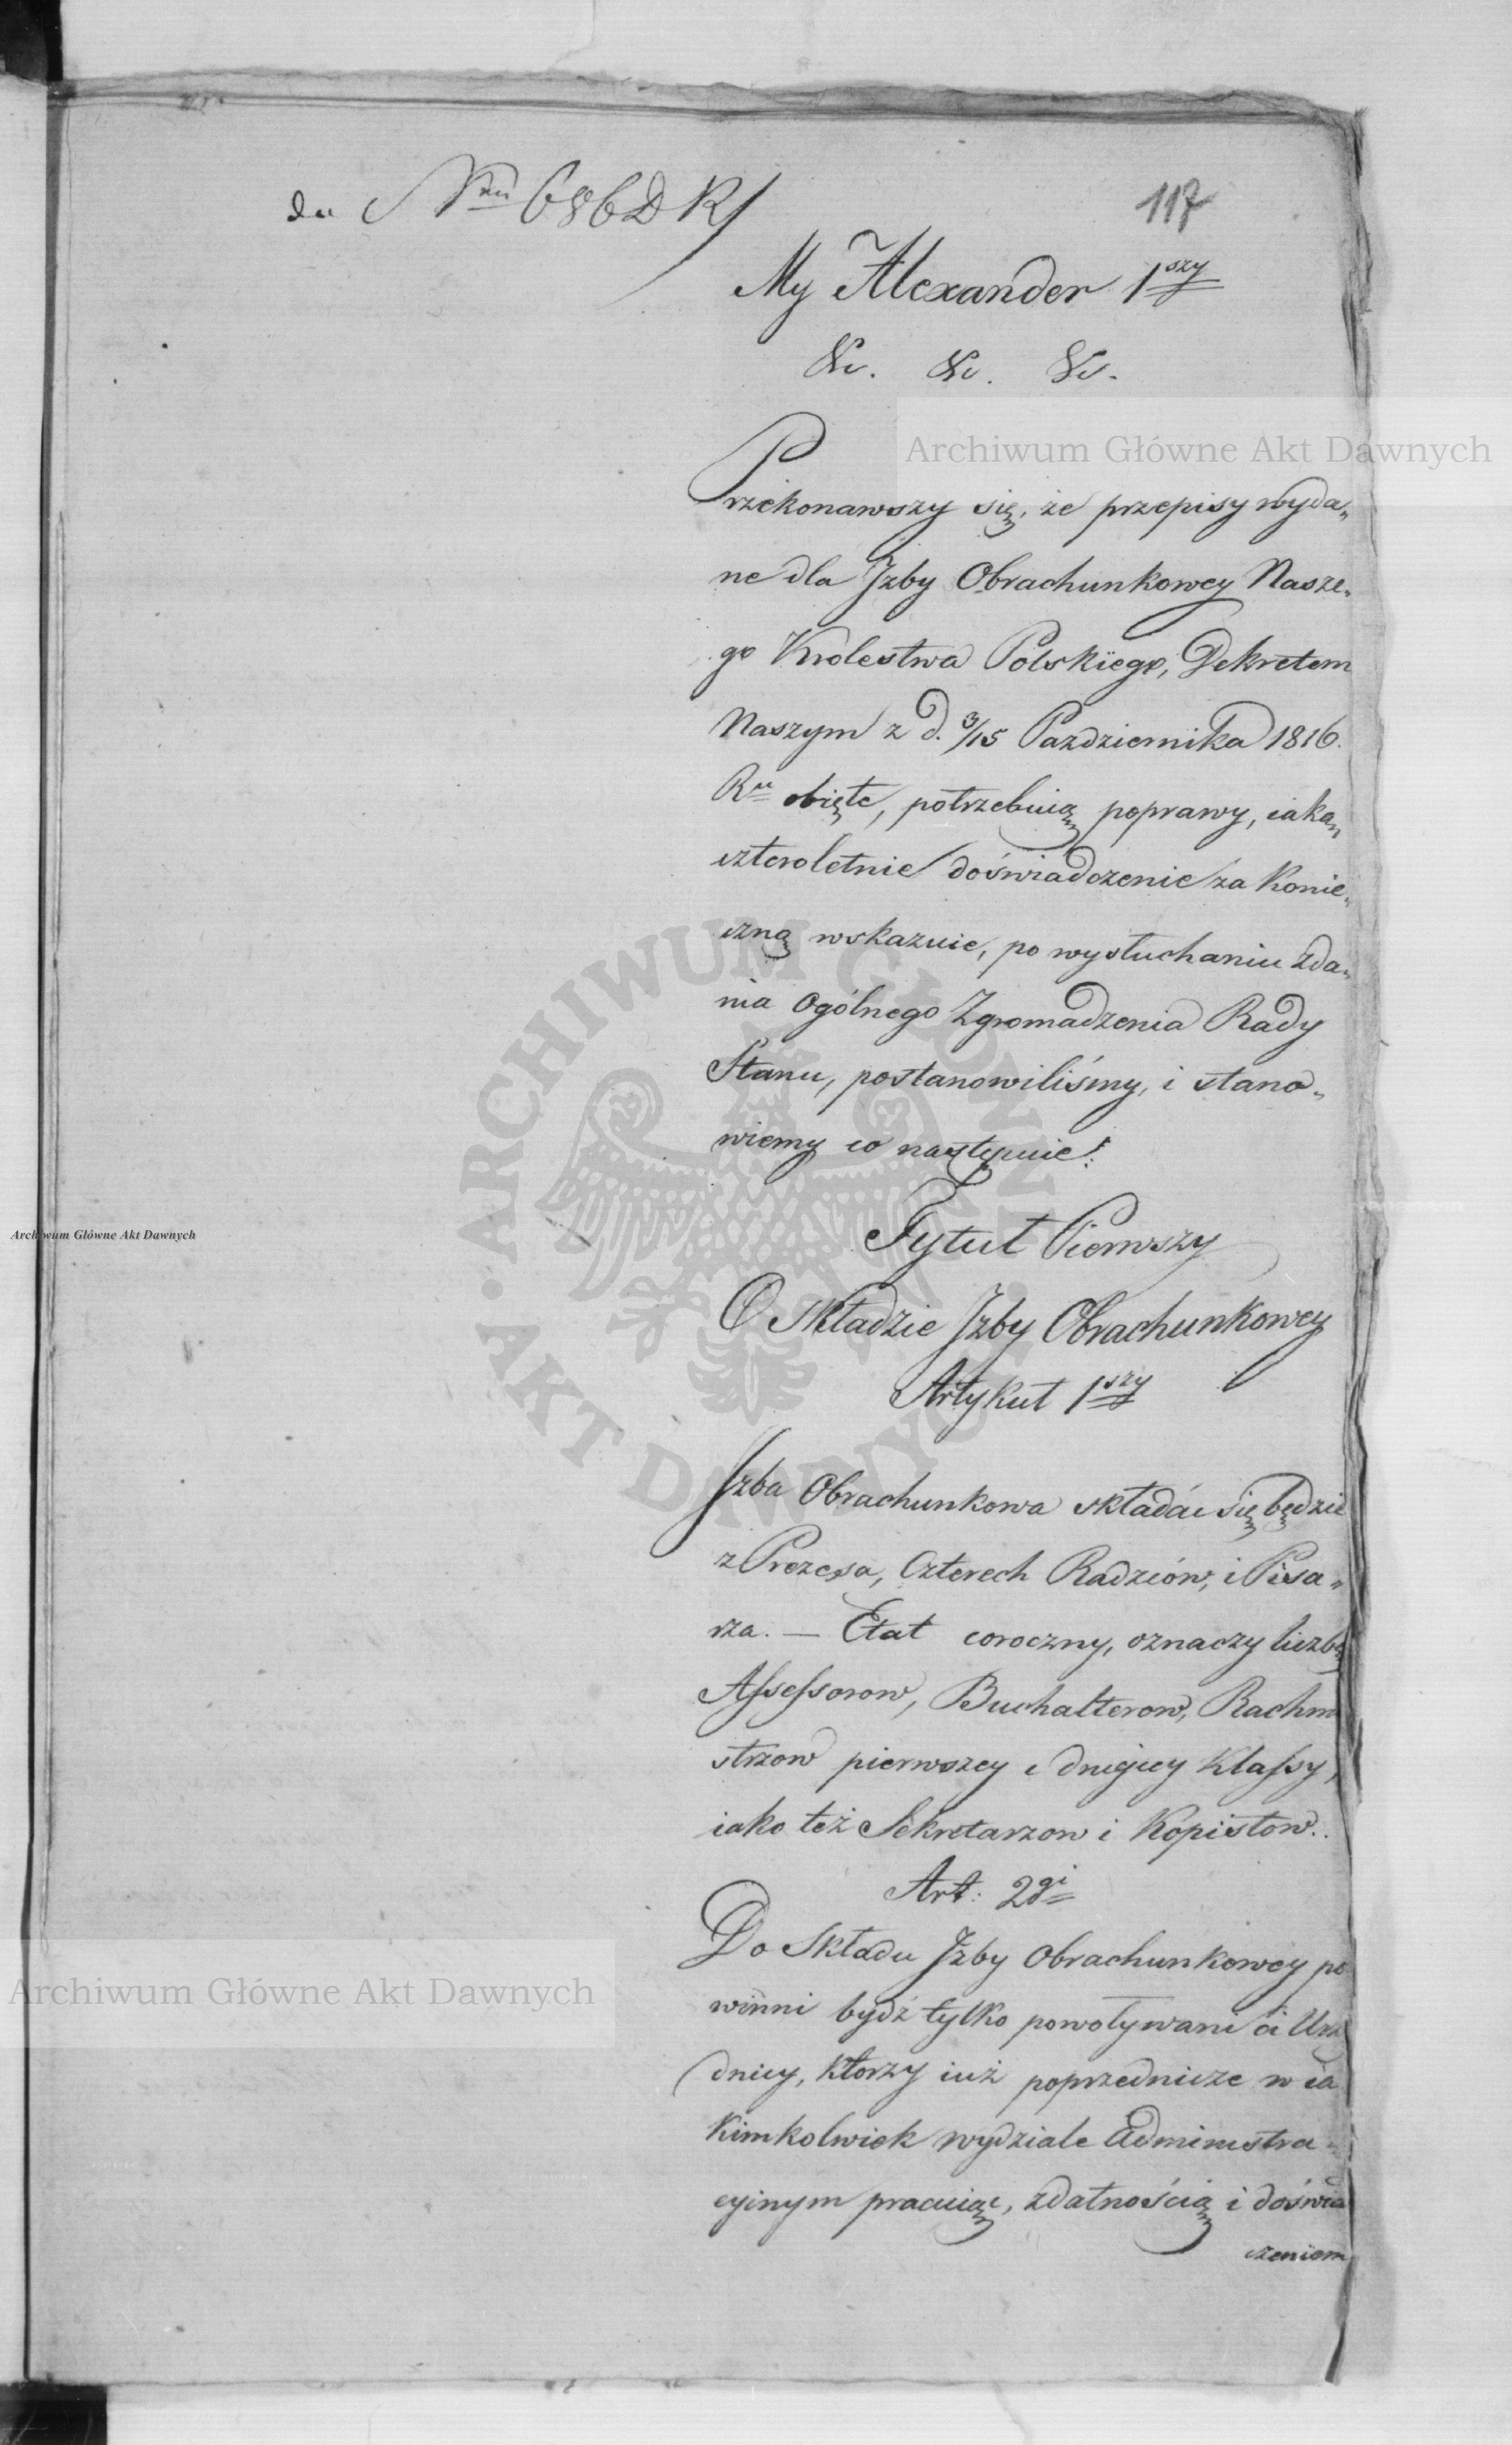 do Nru 686 D R/
117
My Alexander 1szy
&c. &c. &c.
Przekonawszy się, że przepisy wyda„
ne dla Jzby Obrachunkowey Nasze„
go Krolestwa Polskiego, Dekretem
Naszym z d. 3/15 Pazdziernika 1816.
Ru obięte, potrzebuią poprawy, iaką
czteroletnie doświadczenie za konie„
czną wskazuie, po wysłuchaniu zda„
nia Ogólnego Zgromadzenia Rady
Stanu, postanowiliśmy, i stano„
wiemy co następuie:
Tytuł Pierwszy
O składzie Jzby Obrachunkowey
Artykuł 1szy
Jzba Obrachunkowa składać się będzie
z Prezesa, Czterech Radzców, i Pisa„
rza. — Etat coroczny, oznaczy liczbę
Assessorow, Buchalterow, Rachm
strzow pierwszey i drugiey Klassy,
iako też Sekretarzow i Kopistow.
Art: 2gi
Do Składu Jzby Obrachunkowey po
winni bydź tylko powoływani ci Urzę
dnicy, ktorzy iuż poprzednicze w ia
kimkolwiek wydziale Administra„
cyinym pracuiąc, zdatnością i doświa
czeniem
Archiwum Główne Akt Dawnych
Archiwum Główne Akt Dawnych
Archiwum Główne Akt Dawnych
ARCHIWUM GŁÓWNE • AKT DAWNYCH •